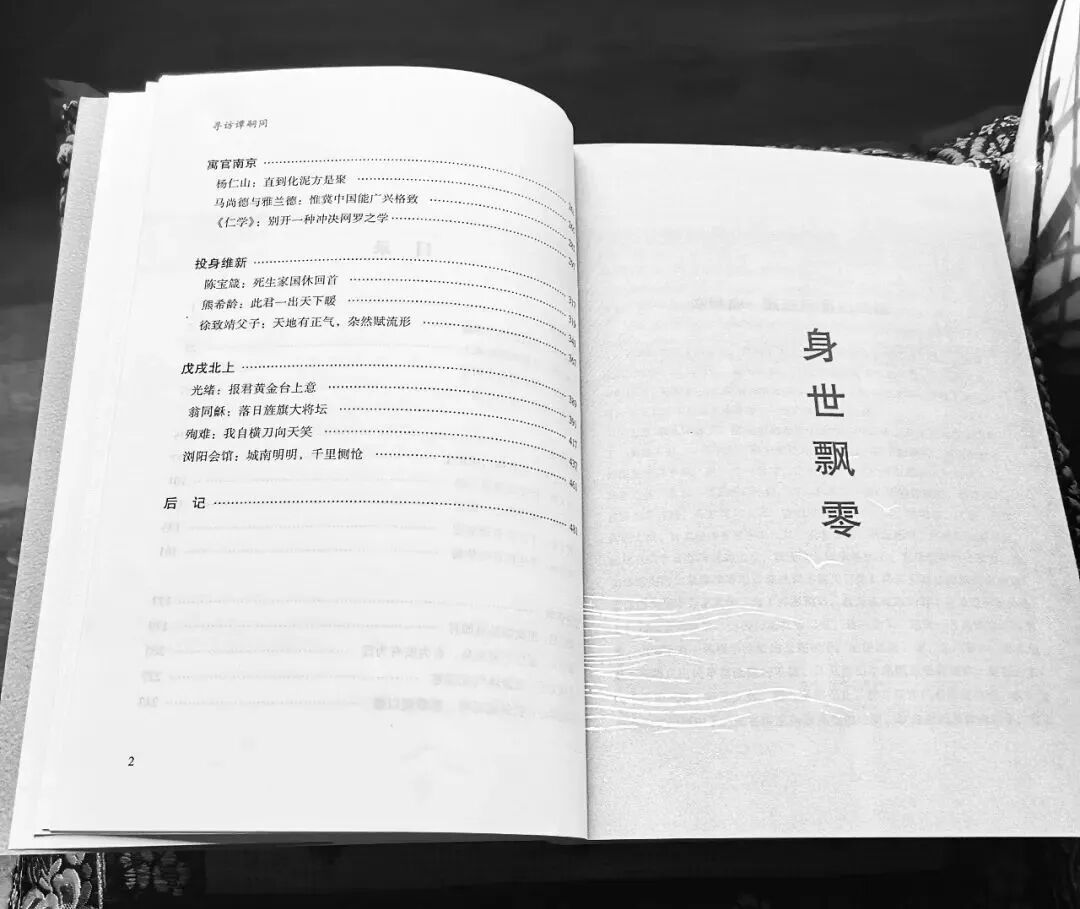 寻访谭嗣同
寓官南京
杨仁山：直到化泥方是聚
马尚德与雅兰德：惟冀中国能广兴格致
《仁学》：别开一种冲决网罗之学
投身维新
陈宝箴：死生家国休回首 317
熊希龄：此君一出天下暖 319
徐致靖父子：天地有正气，杂然赋流形
戊戌北上
光绪：报君黄金台上意 389
翁同龢：落日旌旗大将坛
殉难：我自横刀向天笑 417
浏阳会馆：城南明明，千里恻怆
后 记 481
2
身世飘零